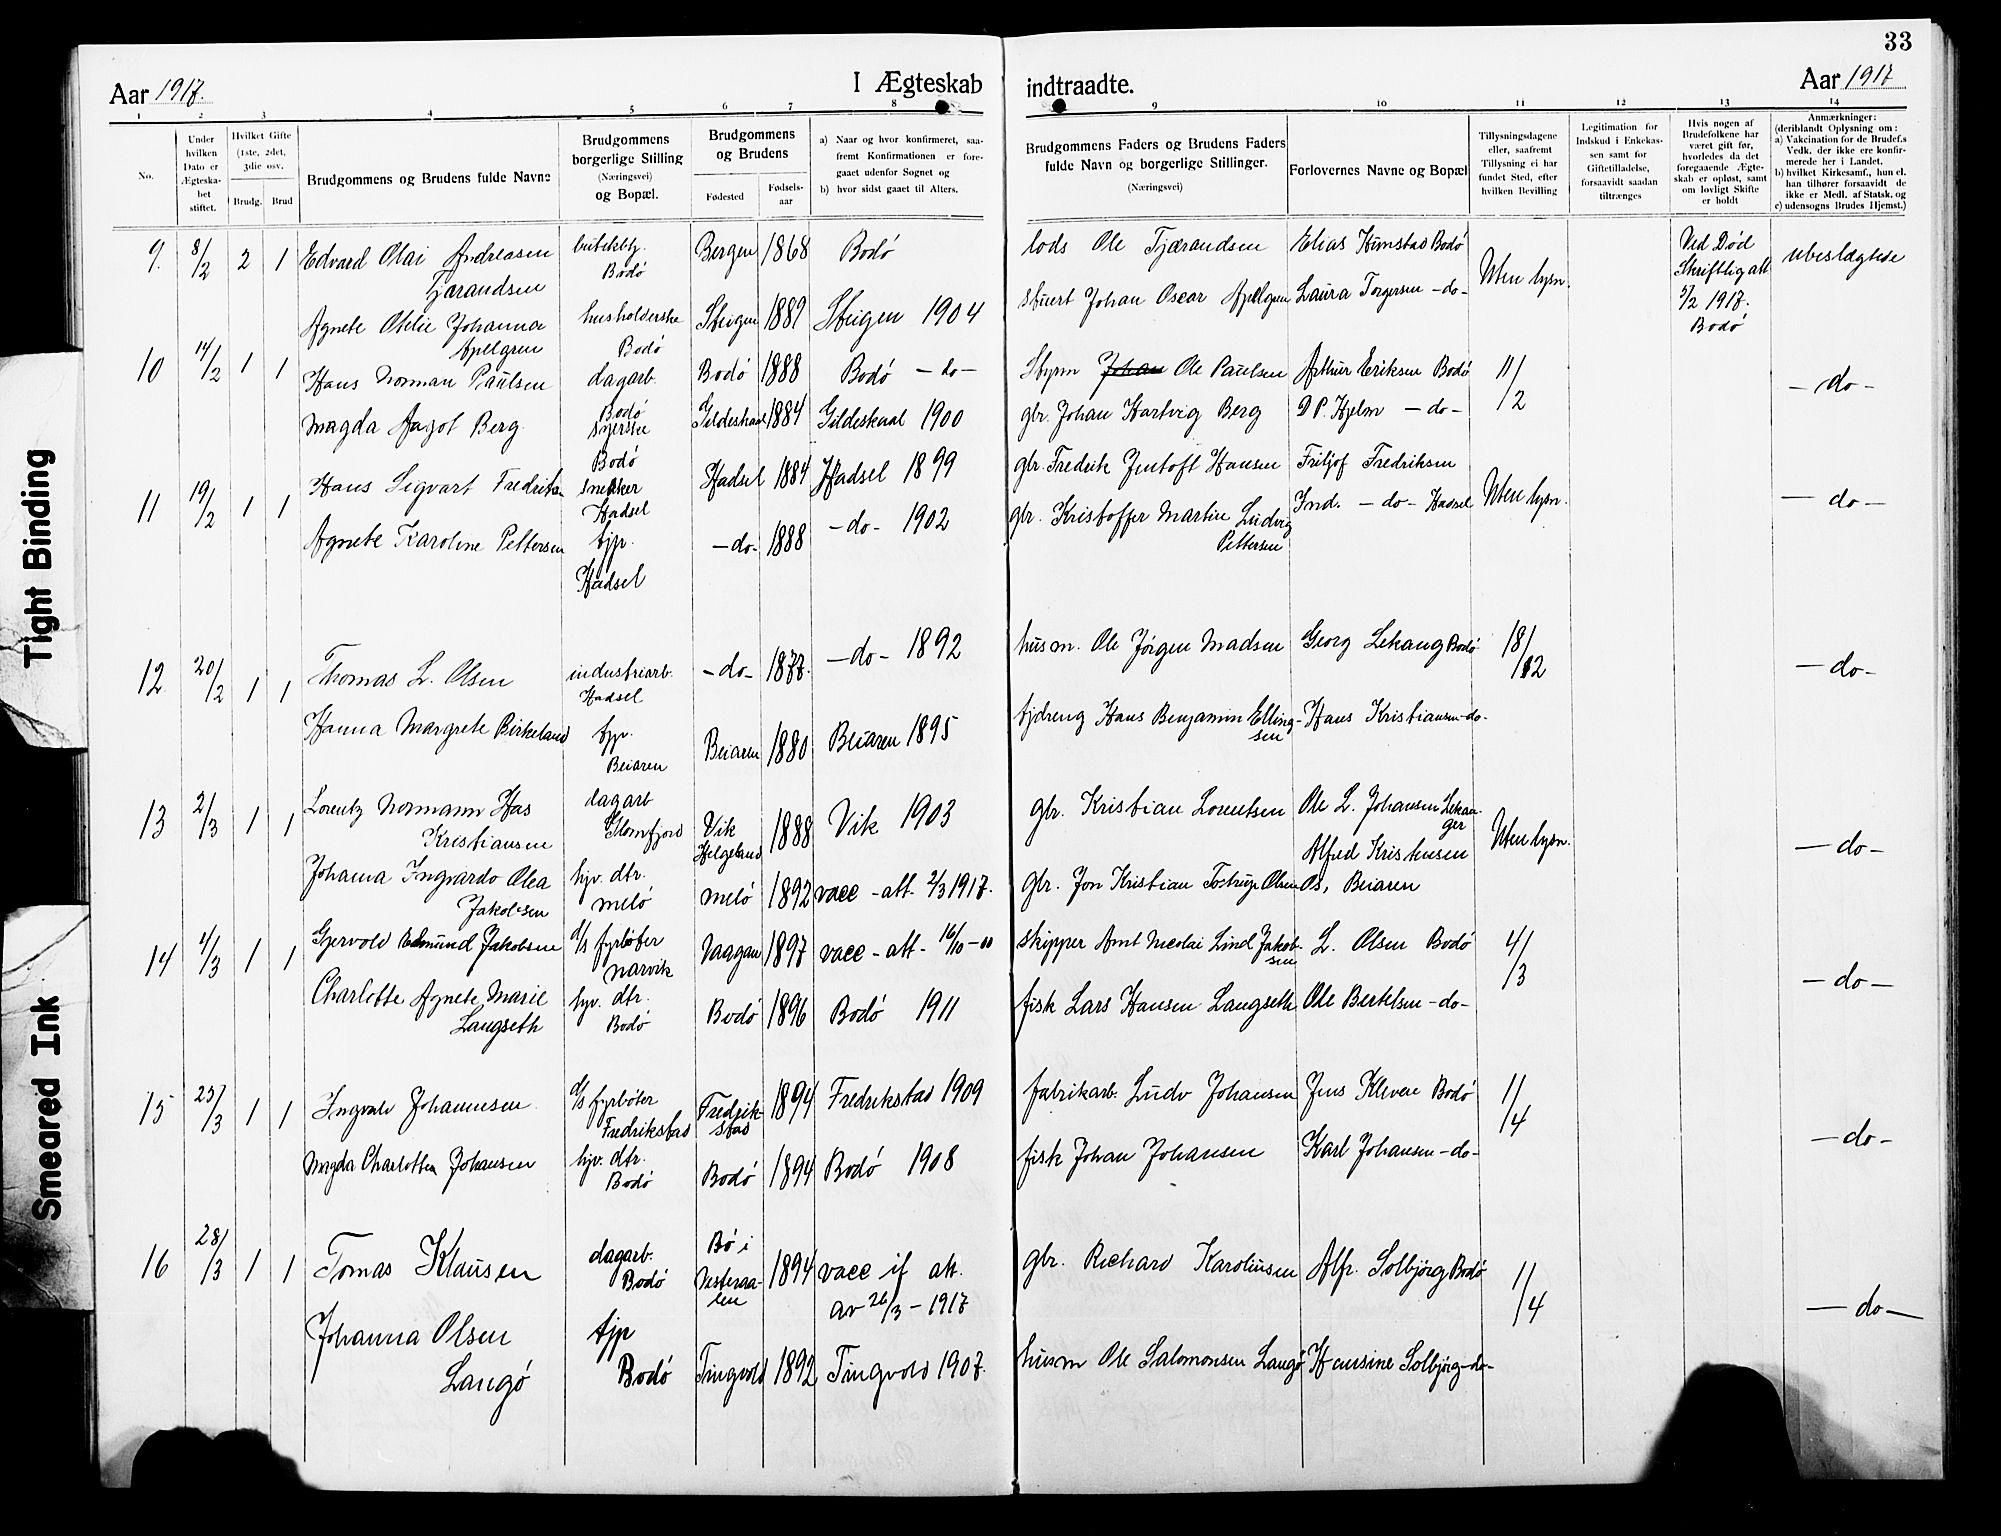 33
Aar 1917.
I Ægteskab
indtraadte.
Aar 1917
1 2 3 4 5 6 7 8 9 10 11 12 13 14
No.
Under hvilken Dato er Ægteska-bet stiftet.
Hvilket Gifte (1ste, 2det, 3die osv.
Brudg. Brud
Brudgommens og Brudens fulde Navne
Brudgommens borgerlige Stilling (Næringsvei) og Bopæl.
Brudgommens og Brudens
Fødested
Fødsels-aar
a) Naar og hvor konfirmeret, saa-fremt Konfirmationen er fore-gaaet udenfor Sognet og
b) hvor sidst gaaet til Alters.
Brudgommens Faders og Brudens Faders fulde Navn og borgerlige Stillinger.
(Næringsvei)
Forlovernes Navne og Bopæl
Tillysningsdagene eller, saafremt Tillysning ei har fundet Sted, efter hvilken Bevilling
Legitimation for Indskud i Enkekas-sen samt for Giftetilladelse, forsaavidt saadan tiltrænges
Hvis nogen af Brudefolkene har været gift før, hvorledes da det foregaaende Ægte-skab er opløst, samt om lovligt Skifte er holdt
Anmærkninger:
(deriblandt Oplysning om:
a) Vakcination for de Brudef.s Vedk. der ikke ere konfir-merede her i Landet.
b) hvilket Kirkesamf., hun el. han tilhører forsaavidt de ikke er Medl. af Statsk. og
c) udensogns Brudes Hjemst.)
9. 8/2 2 1 Edvard Olai Andreasen Tjærandsen Bodö Bergen 1868 Bodö lods Ole Tjærandsen Elias Hunstad Bodö Uten lysn. Ved Död Skriftlig att 5/2 1917. Bodö ubeslægtede
Agnete Otelie Johanna Apelgren husholderske Bodö Steigen 1889 Steigen 1904 stuert Johan Oscar Apelgren Laura Torgersen -do-
10 14/2 1 1 Hans Norman Paulsen dagarb. Bodö Bodö 1888 Bodö - do - Styrm Johan Ole Paulsen Arthur Eriksen Bodö 11/2 - do -
Magda Aagot Berg. syerske Bodö Gildeskaal 1884 Gildeskaal 1900 gbr. Johan Hartvig Berg D P. Hjelm - do -
11 19/2 1 1 Hans Sigvart Fredriksen snekker Hadsel Hadsel 1884 Hadsel 1899 gbr. Fredrik Jentoft Hansen Fritjof Fredriksen Uten lysn. - do -
Agnete Karoline Pettersen tjp. Hadsel -do- 1888 -do- 1902 gbr. Kristoffer Martin Ludvig Pettersen Ind. - do - Hadsel
12 20/2 1 1 Thomas L. Olsen industriarb. Hadsel -do- 1877. -do- 1892 husm. Ole Jörgen Madsen Georg Lekang Bodö 18/2 - do -
Hanna Margrete Birkeland tjp. Beiaren Beiaren 1880 Beiaren 1895 tjdreng Hans Benjamin Elling-sen Hans Kristiansen -do-
13 2/3 1 1 Lorentz Normann Has Kristiansen dagarb Glomfjord Vik Helgeland 1888 Vik 1903 gbr. Kristian Lorentsen Ole L. Johansen Alfred Kristensen Uten lysn. - do -
Johanna Ingvardo Olea Jakobsen hjv. dtr. Melö Melö 1892 vacc - att. 2/3 1917. gbr. Jon Kristian Tostrup Olsen Os, Beiaren
14 4/3 1 1 Gjervold Edmund Jakobsen d/s fyrböter Narvik Vaagan 1897 vacc - att. 16/10-00 skipper Amt Nicolai Lind Jakob-sen L. Olsen Bodö 4/3 - do -
Charlotte Agnete Marie Langseth hjv. dtr. Bodö Bodö 1896 Bodö 1911 fisk Lars Hansen Langseth Ole Bertelsen -do-
15 25/3 1 1 Ingvald Johannesen d/s fyrböter Fredrikstad Fredrik-stad 1894 Fredrikstad 1909 fabrikarb. Ludv Johansen Jens Kleven Bodö 1/4 - do -
Magda Charlotten Johansen hjv. dtr. Bodö Bodö 1894 Bodö 1908 fisk Johan Johansen Karl Johansen -do-
16 28/3 1 1 Tomas Klausen dagarb. Bodö Bö i Vesteraa-len 1894 vacc if att. av 26/3-1917 gbr. Richard Karoliusen Alfr. Solbjörg Bodö 1/4 - do -
Johanna Olsen Langö tjp Bodö Tingvold 1892 Tingvold 1907. husm Ole Salomonsen Langö Hansine Solbjörg -do-
Tight Binding
Smeared Ink